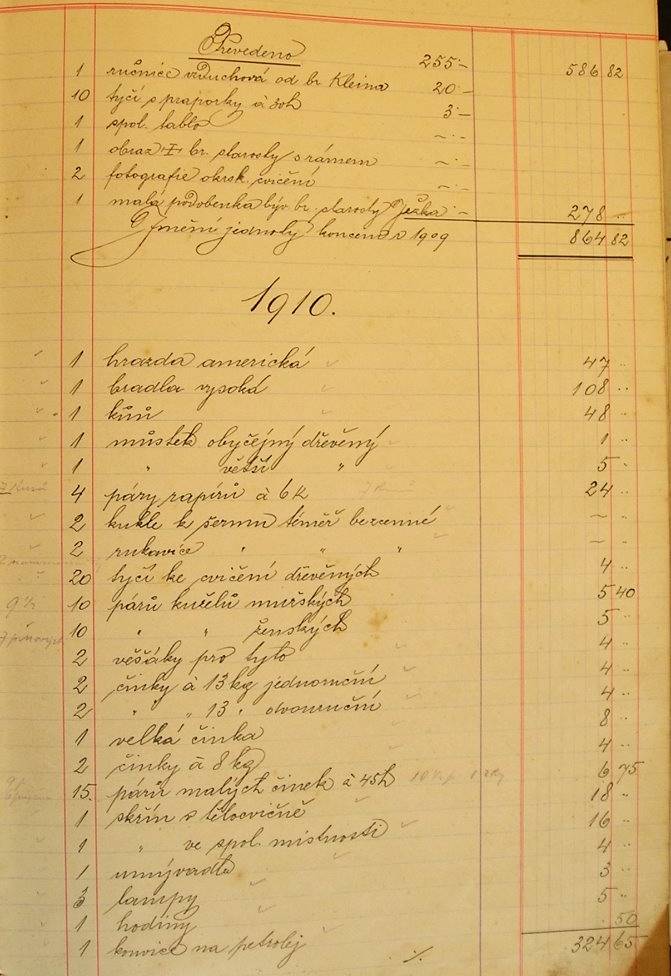 Převedeno 255·– 586 82
1 ručnice vzduchová od br Kleina 20·–
10 tyčí s praporky à 30h 3·–
1 spol. tablo –·–
1 obraz I br. starosty s rámem –·–
2 fotografie okrsk. cvičení –·–
1 malá podobenka býv. br. starosty Ježka – 278 ··
Jmění jednoty koncem r 1909 864 82
1910.
1 hrazda americká 47 ··
1 bradla vysoká 108 ··
1 kůň 48 ··
1 můstek obyčejný dřevěný 1 ··
1 " větší " 5 ·
4 páry rapírů à 6 K 24 ··
2 kukle k šermu téměř bezcenné – ··
2 rukavice " " " – ··
20 tyčí ke cvičení dřevěných 4 ··
9½ 10 párů kuželů mužských 5 40
10 " " ženských 5 ··
2 věšáky pro tyto 4 ··
2 činky à 13 kg jednoruční 4 ··
2 " " 13 " dvouruční 4 ··
1 velká činka 8 ··
2 činky à 8 kg 4 ··
15. párů malých činek à 45h 6 75
1 skříň v tělocvičně 18 ··
1 " ve spol. místnosti 16 ··
1 umývadlo 4 ··
3 lampy 3 ··
1 hodiny 5 ··
1 konvice na petrolej · 50
·/. 324 65